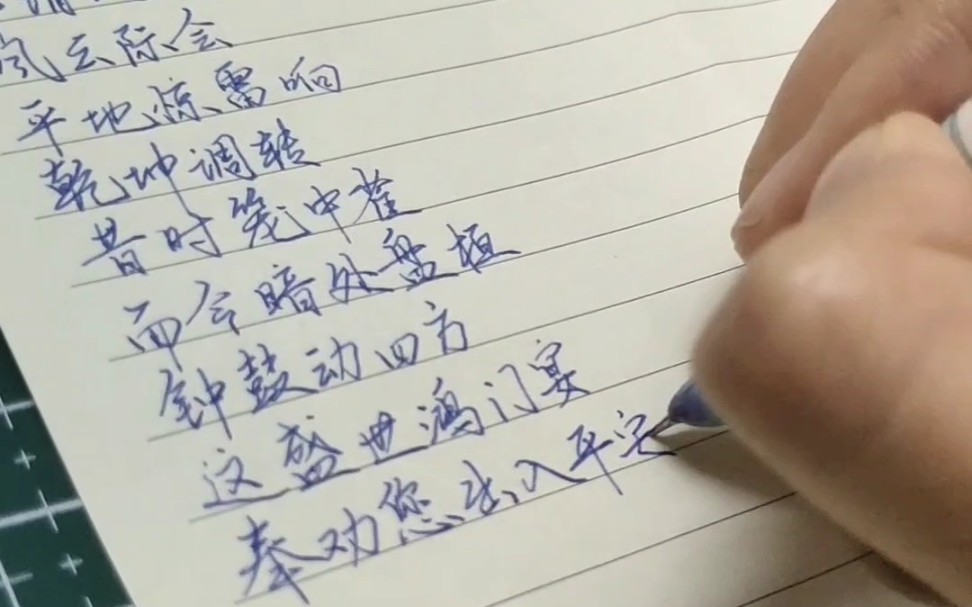 风云际会
平地惊雷响
乾坤调转
昔时笼中雀
而今暗处盘桓
钟鼓动四方
这盛世鸿门宴
奉劝您出入平安